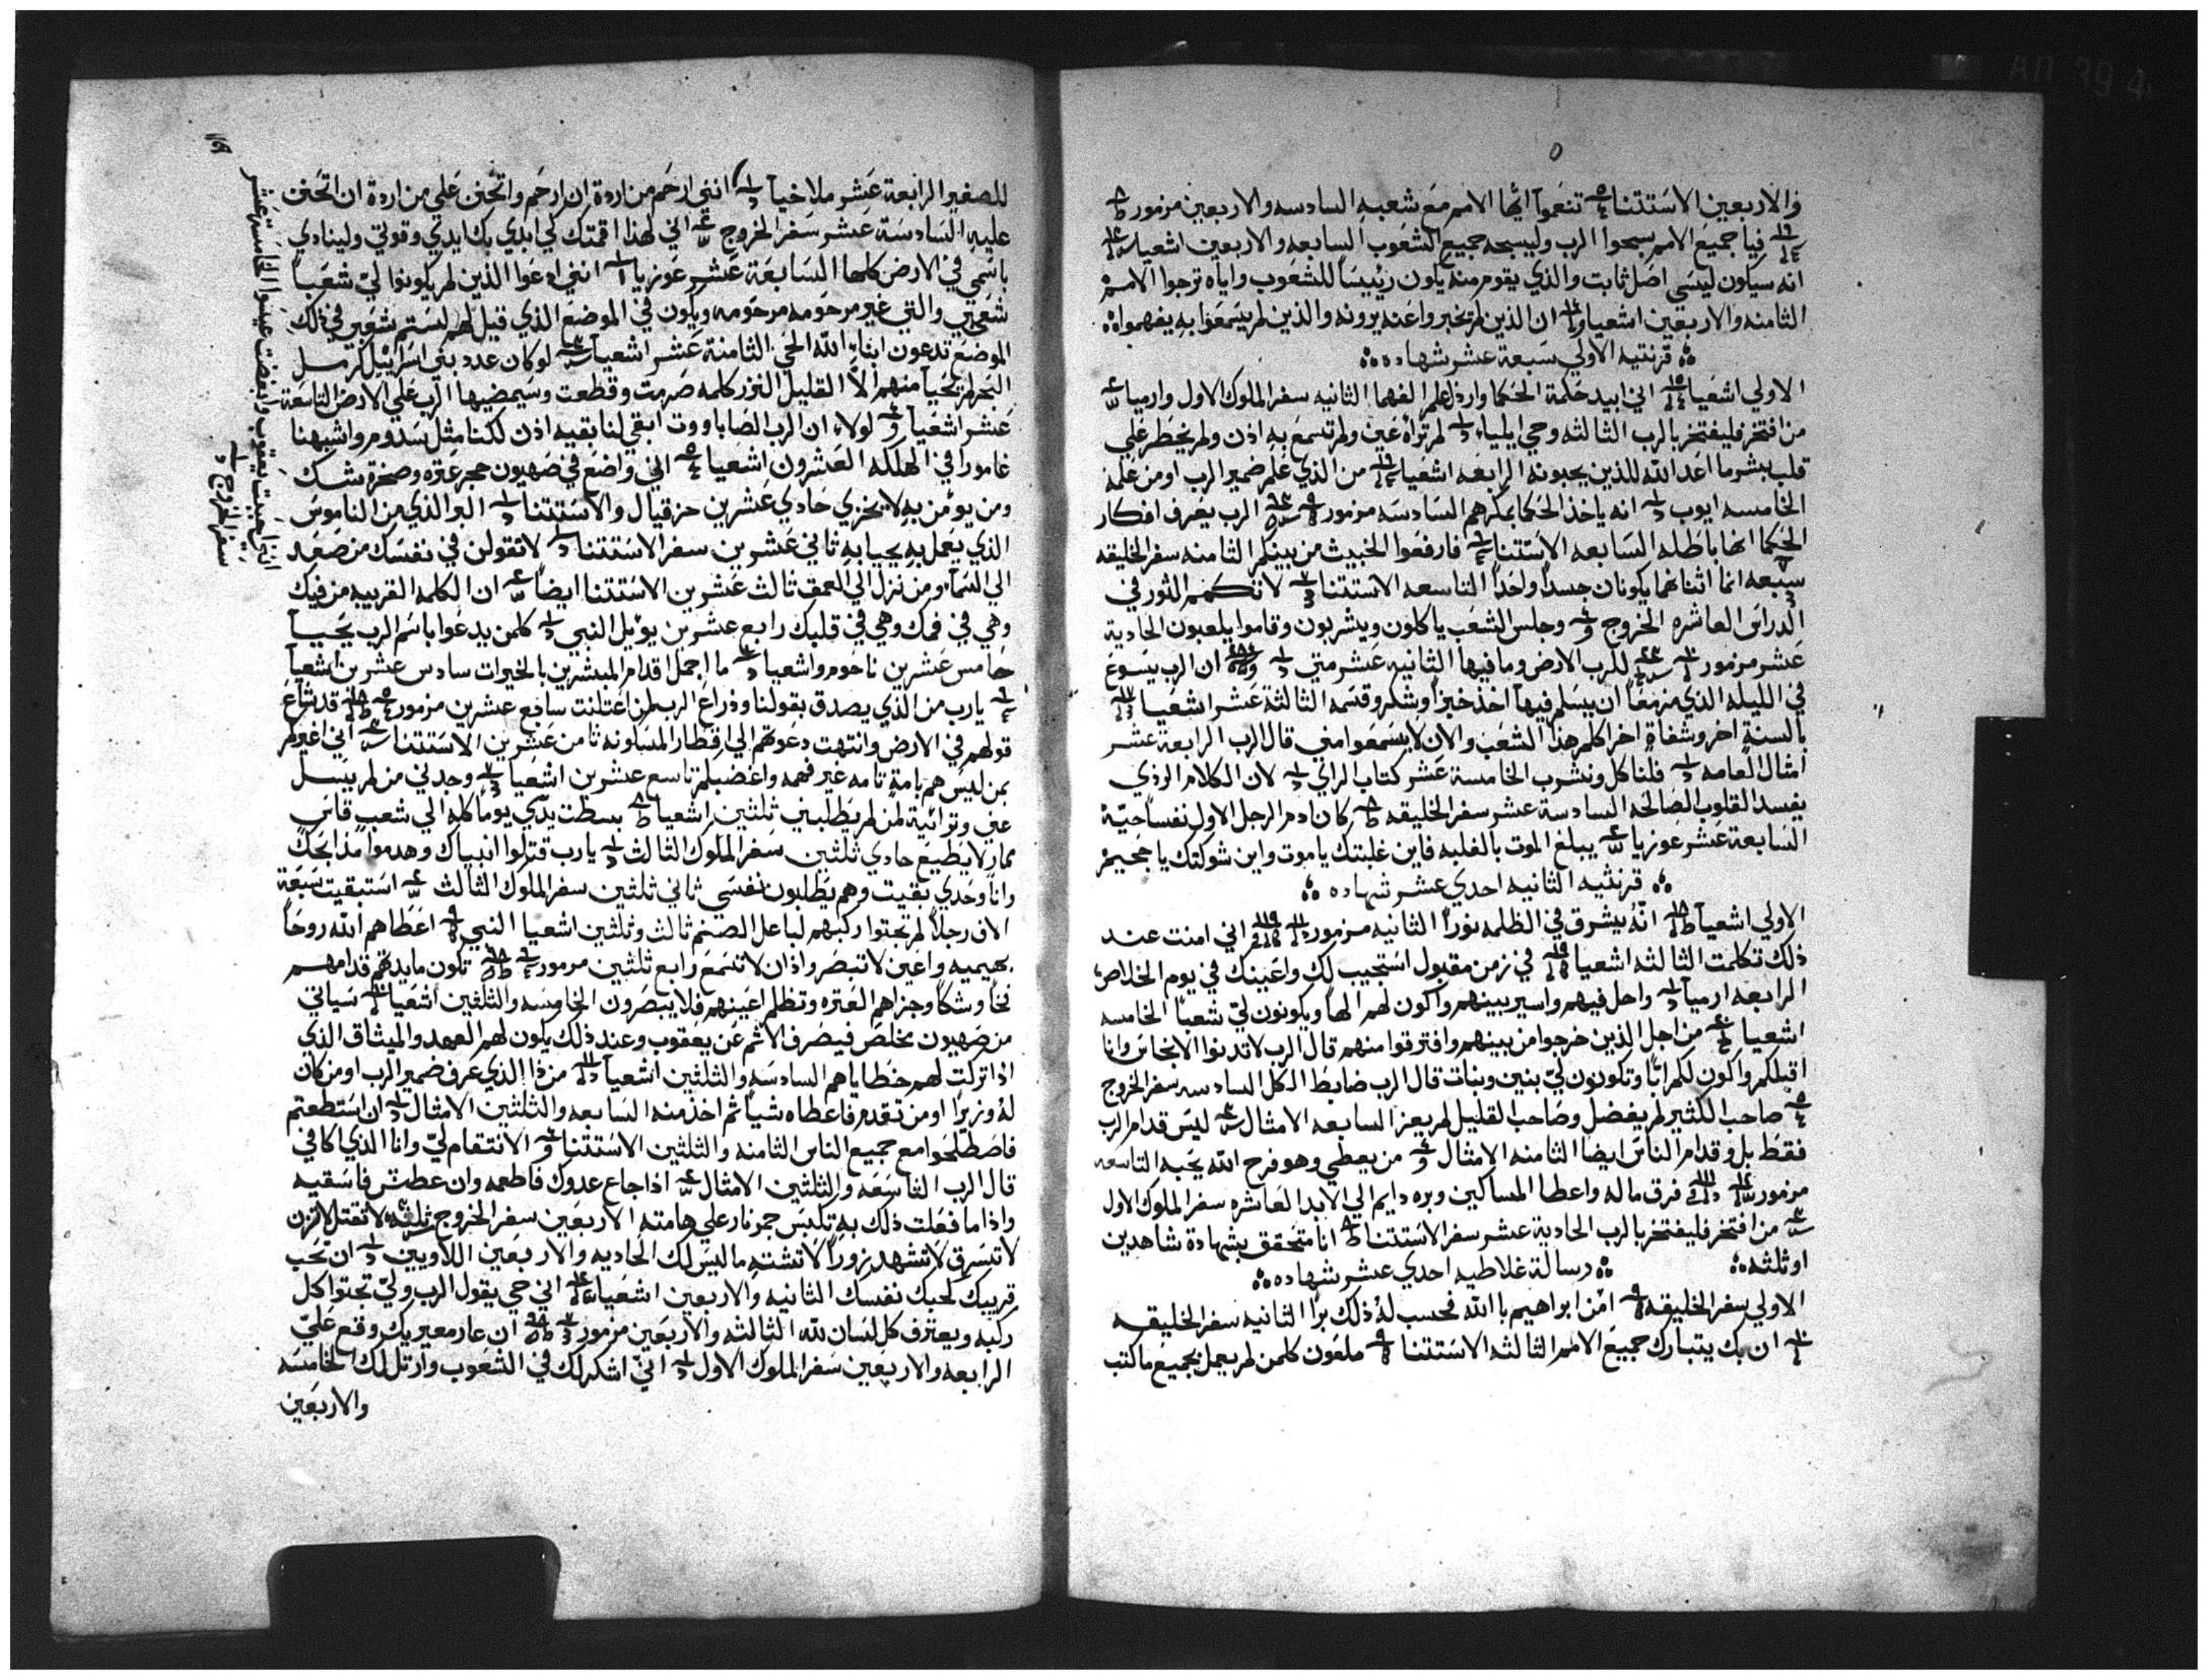 للصغير الرابعة عشر ملاخيا انني ارحم من اردة ان ارحم واتحنن علي من اردة ان اتحنن
عليه السادسة عشر سفر الخروج اني لهذا اقمتك لكي ابدي بك ايدي وقوتي ولينادي
باسمي في الارض كلها السابعة عشر عوزيا انني ادعوا الذين لم يكونوا لي شعباً
شعبي والتي غير مرحومه مرحومه ويكون في الموضع الذي قيل لهم لستم شعبي في ذلك
الموضع تدعون ابناء الله الحي الثامنة عشر اشعيا لو كان عدد بني اسرائيل كرمل
البحر لم يحيا منهم الا القليل النزر كلمه صرمت وقطعت وسيمضيها الرب علي الارض التاسعة
عشر اشعيا لولاء ان الرب الصاباووت ابقي لنا بقيه اذن لكنا مثل سدوم واشبهنا
غامورا في الهلكه العشرون اشعيا اني واضع في صهيون حجر عتره وصخرة شك
ومن يومن به لا يخزي حادي عشرين حزقيال والاستتنا البر الذي من الناموس
الذي يعمل به يحيا به ثاني عشرين سفر الاستتنا لا تقولن في نفسك من صعد
الي السماء ومن نزل الي العمق ثالث عشرين الاستتنا ايضاً ان الكلمه القريبه من فيك
وهي في فمك وهي في قلبك رابع عشرين يوئيل النبي كلمن يدعوا باسم الرب يحيا
خامس عشرين ناحوم واشعيا ما اجمل اقدام المبشرين بالخيرات سادس عشرين اشعيا
يارب من الذي يصدق بقولنا وذراع الرب لمن اعتلنت سابع عشرين مزمور قد شاع
قولهم في الارض وانتهت دعوتهم الي اقطار المسكونه ثامن عشرين الاستتنا اني اغيركم
بمن ليس هم بامة تامه غير فهمه واغضبكم تاسع عشرين اشعيا وجدني من لم يسل
عني وترائية لمن لم يطلبني ثلثين اشعيا بسطت يدي يوماً كله الي شعب قاس
ممار لا يطيع حادي ثلثين سفر الملوك الثالث يارب قتلوا انبياك وهدموا مذابحك
وانا وحدي بقيت وهم يطلبون نفسي ثاني ثلثين سفر الملوك الثالث استبقيت سبعة
الاف رجلاً لم تجتوا ركبهم لباعل الصنم ثالث وثلثين اشعيا النبي اعطاهم الله روحاً
واعين لا تبصر واذان لا تسمع رابع ثلثين مزمور تكون مايدتهم قدامهم
نخاً وشكاً وجزاهم العتره وتظلم اعينهم فلا يبصرون الخامسه والثلثين اشعيا سياتي
من صهيون مخلص فيصرف الاثم عن يعقوب وعند ذلك يكون لهم العهد والميثاق الذي
اذا تركت لهم خطاياهم السادسه والثلثين اشعيا من ذا الذي عرف ضمير الرب او من كان
له وزيراً او من تقدم فاعطاه شياً ثم اخذ منه السابعه والثلثين الامثال ان استطعتم
فاصطلحوا مع جميع الناس الثامنه والثلثين الاستتنا الانتقام لي وانا الذي اكافي
قال الرب التاسعه والثلثين الامثال اذا جاع عدوك فاطعمه وان عطش فاسقيه
واذا ما فعلت ذلك به تلبس جمر نار علي هامته الاربعين سفر الخروج لا تقتل لا تزن
لا تسرق لا تشهد زوراً لا تشته ما ليس لك الحاديه والاربعين اللاويين ان تحب
قريبك كحبك نفسك الثانيه والاربعين اشعياء اني حي يقول الرب ولي تجتوا كل
ركبه ويعترف كل لسان لله الثالثه والاربعين مزمور ان عار معيريك وقع علي
الرابعه والاربعين سفر الملوك الاول اني اشكرك في الشعوب وارتل لك الخامسه
والاربعين
انني احببت يعقوب وابغضت عيسوا الخامسة عشر
سفر الخروج
والاربعين الاستتنا تنعموا ايها الامم مع شعبه السادسه والاربعين مزمور
فيا جميع الامم سبحوا الرب وليسبحه جميع الشعوب السابعه والاربعين اشعيا
انه سيكون ليسي اصل ثابت والذي يقوم منه يكون رييساً للشعوب واياه ترجوا الامم
الثامنه والاربعين اشعيا ان الذين لم يخبروا عنه يرونه والذين لم يسمعوا به يفهمواه
قرنتيه الاولي سبعة عشر شهاده
الاولي اشعيا اني ابيد حكمة الحكما وارذل علم الفهما الثانيه سفر الملوك الاول وارميا
من افتخر فليفتخر بالرب الثالثه وحي ايلياء لم تراه عين ولم تسمع به اذن ولم يخطر علي
قلب بشر ما اعد الله للذين يحبونه الرابعه اشعيا من الذي علم ضمير الرب او من علمه
الخامسه ايوب انه ياخذ الحكما بمكرهم السادسه مزمور الرب يعرف افكار
الحكما انها باطله السابعه الاستتنا فارفعوا الخبيث من بينكم الثامنه سفر الخليقه
سبعه انما اثناهما يكونان جسداً واحداً التاسعه الاستتنا لا تكمم الثور في
الدراس العاشره الخروج وجلس الشعب ياكلون ويشربون وقاموا يلعبون الحادية
عشر مزمور للرب الارض وما فيها الثانيه عشر متي ان الرب يسوع
في الليله الذي مزمعاً ان يسلم فيها اخذ خبزاً وشكر وقسمه الثالثة عشر اشعيا
بالسنة اخر وشفاة اخر اكلم هذا الشعب والان لا يسمعوا مني قال الرب الرابعة عشر
امثال العامه فلناكل ونشرب الخامسة عشر كتاب الراي لان الكلام الرذي
يفسد القلوب الصالحه السادسة عشر سفر الخليقه كان ادم الرجل الاول نفساً حية
السابعة عشر عوزيا يبلغ الموت بالغلبه فاين غلبتك يا موت واين شوكتك يا جحيم
قرنثيه الثانيه احدي عشر شهاده
الاولي اشعيا انه يشرق في الظلمه نوراً الثانيه مزمور اني امنت عند
ذلك تكلمت الثالثه اشعيا في زمن مقبول استجيب لك واعينك في يوم الخلاص
الرابعه ارميا واحل فيهم واسير بينهم واكون لهم الهاً ويكونون لي شعباً الخامسه
اشعيا من اجل الذين خرجوا من بينهم وافترقوا منهم قال الرب لا تدنوا الانجاس وانا
اقبلكم واكون لكم اباً وتكونون لي بنين وبنات قال الرب ضابط الكل السادسه سفر الخروج
صاحب الكثير لم يفضل وصاحب القليل لم يعز السابعه الامثال ليس قدام الرب
فقط بل وقدام الناس ايضاً الثامنه الامثال من يعطي وهو فرح الله يحبه التاسعه
مزمور فرق ماله واعطا المساكين وبره دايم الي الابد العاشره سفر الملوك الاول
من افتخر فليفتخر بالرب الحادية عشر سفر الاستتنا انا متحقق بشهادة شاهدين
او ثلثه
رسالة غلاطيه احدي عشر شهاده
الاولي سفر الخليقه امن ابراهيم بالله فحسب له ذلك براً الثانيه سفر الخليقه
ان بك يتبارك جميع الامم الثالثه الاستتنا ملعون كلمن لم يعمل بجميع ما كتب